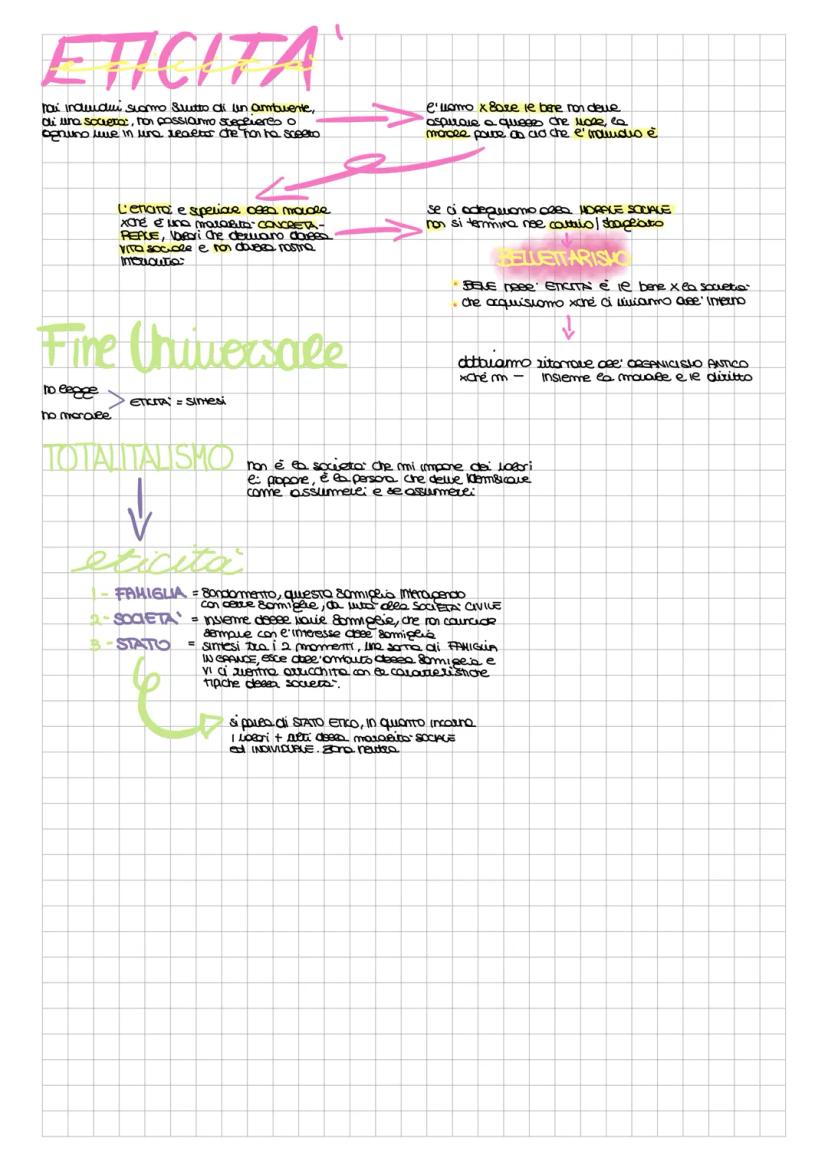 ETICITA'
eticità
noi individui siamo frutto di un ambiente,
di una società, non possiamo sceglierlo o
ognuno vive in una realtà che non ha scelto
l'uomo x fare il bene non deve
aspirare a quello che vuole, la
morale parte da ciò che l'individuo è
L'ETICITÀ è superiore alla morale
xché è una moralità CONCRETA-
MENTE, valori che derivano dalla
VITA SOCIALE e non dalla nostra
interiorità
se ci adeguiamo alla MORALE SOCIALE
non si termina nel cattivo/sbagliato
BELLETTARISMO
• BENE nell' ETICITÀ è il bene x la società
• che acquisiamo xché ci viviamo all' interno
dobbiamo ritornare all' ORGANICISMO ANTICO
xché m — insieme la morale e il diritto
Fine Universale
no legge
no morale
ETICITÀ = sintesi
TOTALITALISMO
non è la società che mi impone dei valori
li propone, è la persona che deve identificare
come assumerli e se assumerli
eticità
1 - FAMIGLIA = fondamento, questa famiglia interagendo
con altre famiglie, da vita alla SOCIETÀ CIVILE
2 - SOCIETA' = insieme delle varie famiglie, che non coincide
sempre con l'interesse dell famiglia
3 - STATO = sintesi tra i 2 momenti, una sorta di FAMIGLIA
IN GRANDE, esce dall'ambito della famiglia e
vi ci rientra arricchita con le caratteristiche
tipiche della società.
si parla di STATO ETICO, in quanto incarna
i valori + alti della moralità SOCIALE
ed INDIVIDUALE. zona neutra